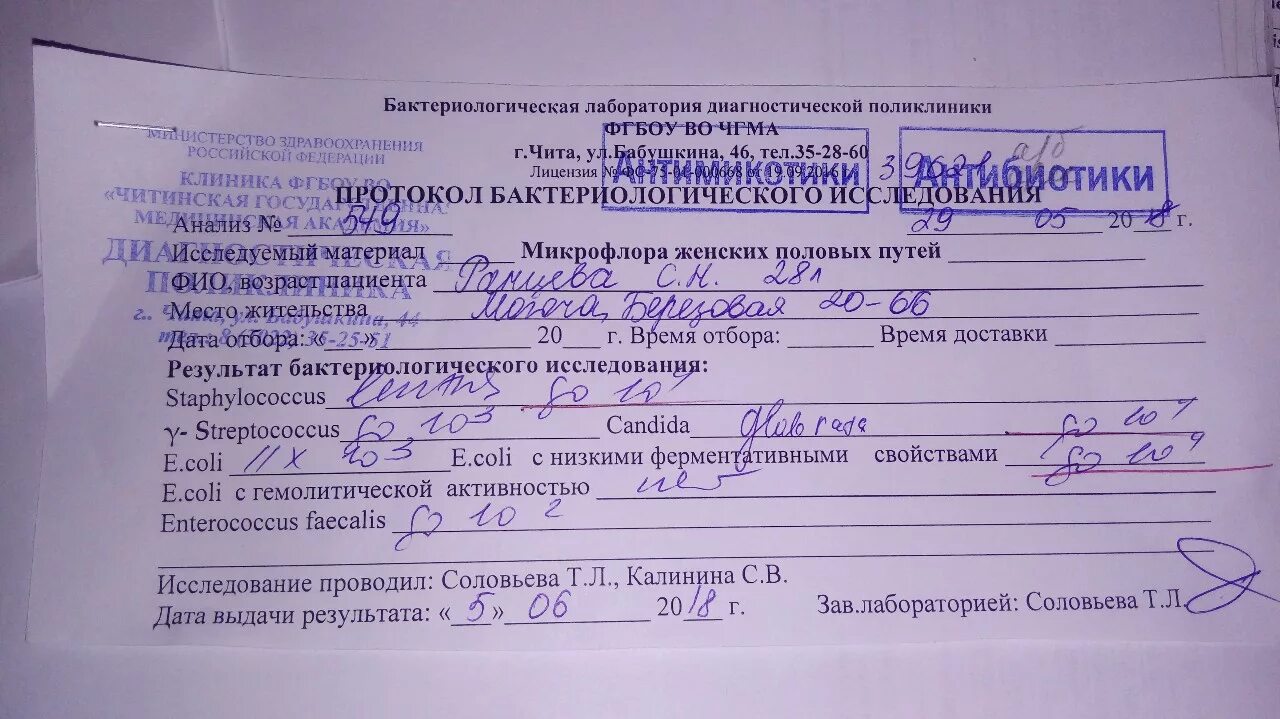 Бактериологическая лаборатория диагностической поликлиники
ФГБОУ ВО ЧГМА
г.Чита, ул.Бабушкина, 46, тел.35-28-60
Лицензия № ФС-75-01-000668 от 19.09.2016
МИНИСТЕРСТВО ЗДРАВООХРАНЕНИЯ
РОССИЙСКОЙ ФЕДЕРАЦИИ
КЛИНИКА ФГБОУ ВО
«ЧИТИНСКАЯ ГОСУДАРСТВЕННАЯ
МЕДИЦИНСКАЯ АКАДЕМИЯ»
ДИАГНОСТИЧЕСКАЯ
ПОЛИКЛИНИКА
г. Чита, ул. Бабушкина, 44
Антимикотики
Антибиотики
ПРОТОКОЛ БАКТЕРИОЛОГИЧЕСКОГО ИССЛЕДОВАНИЯ
Анализ № 549 29 05 2018 г.
Исследуемый материал Микрофлора женских половых путей
ФИО, возраст пациента С.Н. 28л
Место жительства Могоча, Березовая 20-66
Дата отбора: « » 20 г. Время отбора: Время доставки
Результат бактериологического исследования:
Staphylococcus lentus до 10⁴
γ- Streptococcus до 10³ Candida до 10⁴
E.coli 10³ E.coli с низкими ферментативными свойствами до 10⁴
E.coli с гемолитической активностью нет
Enterococcus faecalis до 10²
Исследование проводил: Соловьева Т.Л., Калинина С.В.
Дата выдачи результата: «5» 06 2018 г. Зав.лабораторией: Соловьева Т.Л.